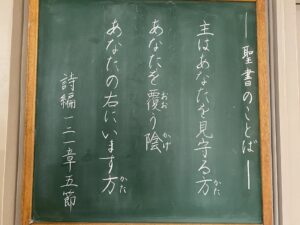 ―聖書のことば―
主はあなたを見守る方
あなたを覆う陰
あなたの右にいます方
詩編一二一章五節